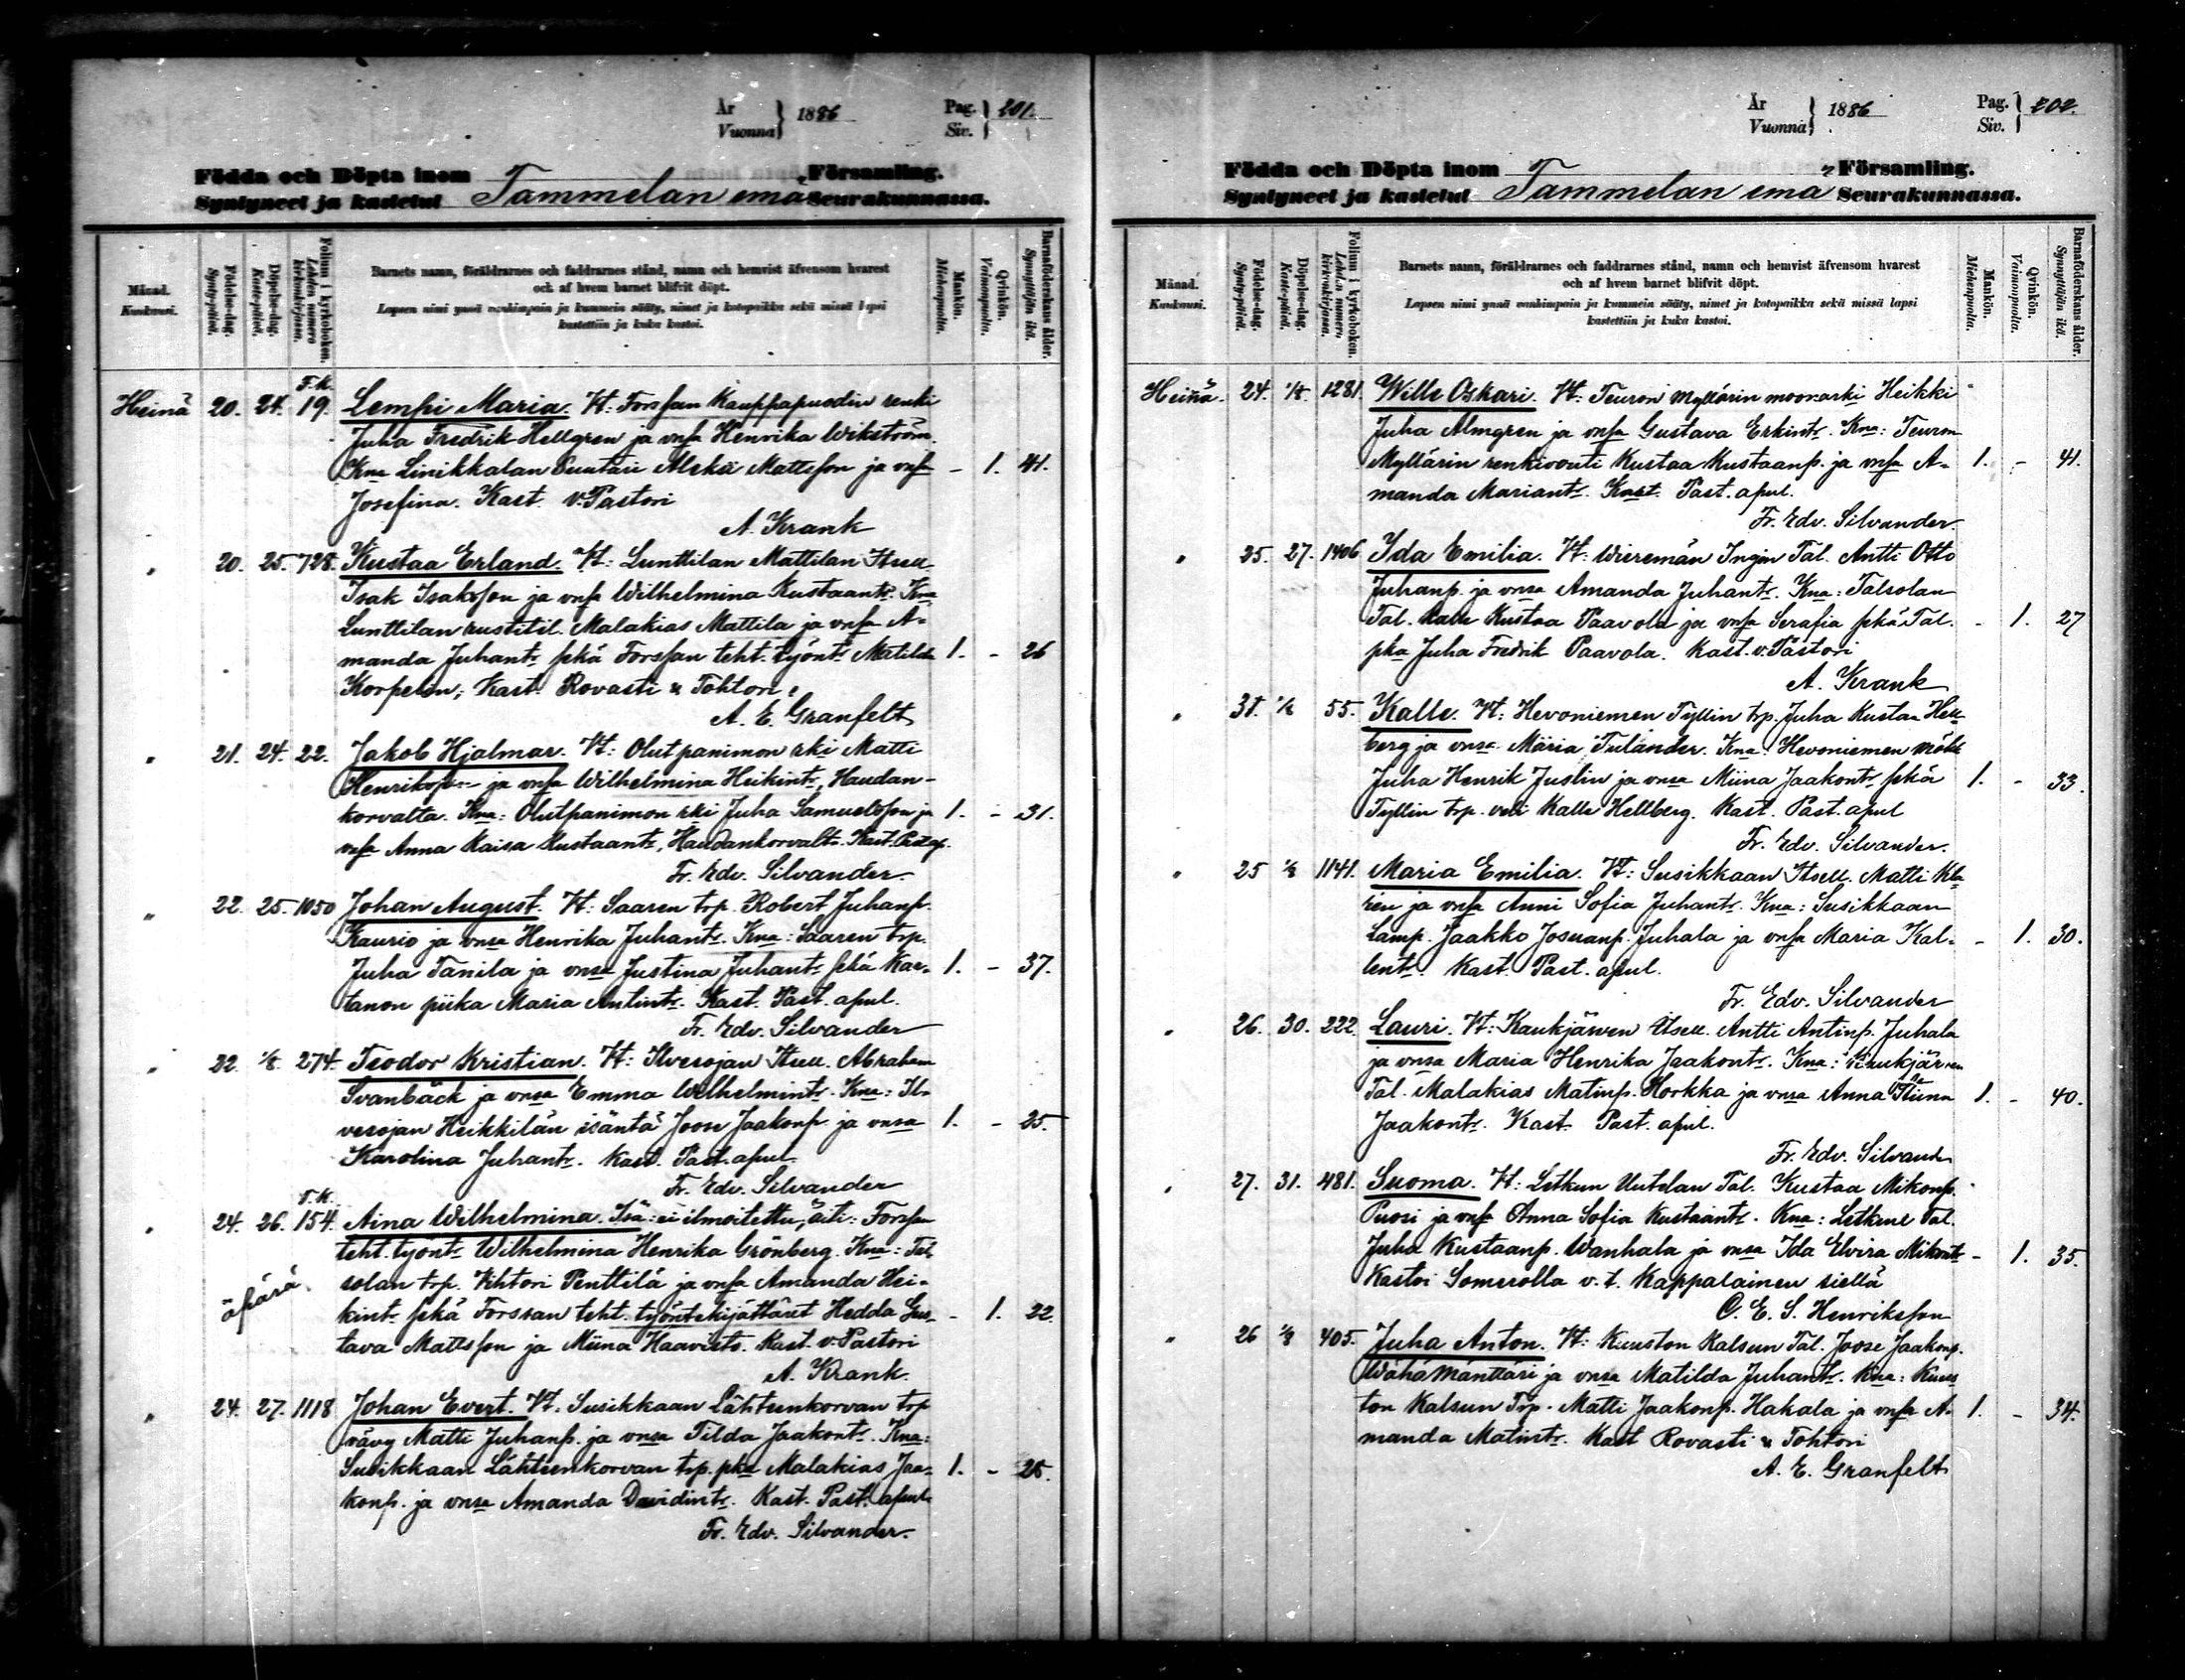 År
Vuonna } 1886
Pag.
Siv. } 201.
Födda och Döpta inom
Syntyneet ja kastetut Tammelan emä Församling.
Seurakunnassa.
Månad.
Kuukausi.
Födelse-dag.
Synty-päivä.
Döpelse-dag.
Kaste-päivä.
Folium i kyrkoboken.
Lehden numero kirkonkirjassa.
Barnets namn, föräldrarnes och faddrarnes stånd, namn och hemvist äfvensom hvarest
och af hvem barnet blifvit döpt.
Lapsen nimi ynnä vanhimpain ja kummein sääty, nimet ja kotopaikka sekä missä lapsi
kastettiin ja kuka kastoi.
Mankön.
Miehenpuolta.
Qvinkön.
Vaimonpuolta.
Barnaföderskans ålder.
Synnyttäjän ikä.
F.K.
Heinä 20. 24. 19. Lempi Maria. Vt: Forssan Kauppapuodin renki
Juha Fredrik Hellgren ja vnsa Henrika Wikström.
Kna Linikkalan Puutari Mattsson ja vnsa - 1. 41.
Josefina. Kast. v. Pastori
A. Krank
" 20. 25. 728. Kustaa Erland. Vt: Lunttilan Mattilan Itsell.
Isak Isaksson ja vnsa Wilhelmina Kustaantr. Kna
Lunttilan rustitil. Malakias Mattila ja vnsa A-
manda Juhantr sekä Forssan teht. työntr Matilda 1. - 26
Kast. Rovasti & Tohtori
A. E. Granfelt
" 21. 24. 22. Jakob Hjalmar. Vt: Olutpanimon rki Matti
Henriksson ja vnsa Wilhelmina Heikintr, Haudan-
korvalta. Kna: Olutpanimon rki Juha Samuelsson ja 1. - 31.
vnsa Anna Kaisa Kustaantr, Haudankorvalt. Kast. Past. ap.
Fr. Edv. Silvander.
" 22. 25. 1050 Johan August. Vt: Saaren trp. Robert Juhanp.
Kaurio ja vnsa Henrika Juhantr. Kna: Saaren trp.
Juha Tanila ja vnsa Justina Juhantr sekä Kar- 1. - 37.
tanon piika Maria Antintr. Kast. Past. apul.
Fr. Edv. Silvander
" 22. 1/8. 274. Teodor Kristian. Vt: Ilvesojan Itsell. Abraham
Svanbäck ja vnsa Emma Wilhelmintr. Kna: Il-
vesojan Heikkilän isäntä Joose Jaakonp. ja vnsa 1. - 25.
Karolina Juhantr. Kast. Past. apul.
Fr. Edv. Silvander
F.K.
" 24. 26. 154. Aina Wilhelmina. Isä: ei ilmoitettu, äiti: Forssan
teht. työntr Wilhelmina Henrika Grönberg. Kna: Tal-
äpärä. solan trp. Vihtori Penttilä ja vnsa Amanda Hei-
kintr sekä Forssan teht. työntekijättäret Hedda Gus- - 1. 22.
tava Mattsson ja Miina Haavisto. Kast. v. Pastori
A. Krank.
" 24. 27. 1118 Johan Evert. Vt. Susikkaan Lähteenkorvan trp
vävy Matti Juhanp. ja vnsa Tilda Jaakontr. Kna:
Susikkaan Lähteenkorvan trp. pka Malakias Jaa- 1. - 25.
konp. ja vnsa Amanda Davidintr. Kast. Past. apul.
Fr. Edv. Silvander.
År
Vuonna } 1886
Pag.
Siv. } 202.
Födda och Döpta inom
Syntyneet ja kastetut Tammelan emä Församling.
Seurakunnassa.
Månad.
Kuukausi.
Födelse-dag.
Synty-päivä.
Döpelse-dag.
Kaste-päivä.
Folium i kyrkoboken.
Lehden numero kirkonkirjassa.
Barnets namn, föräldrarnes och faddrarnes stånd, namn och hemvist äfvensom hvarest
och af hvem barnet blifvit döpt.
Lapsen nimi ynnä vanhimpain ja kummein sääty, nimet ja kotopaikka sekä missä lapsi
kastettiin ja kuka kastoi.
Mankön.
Miehenpuolta.
Qvinkön.
Vaimonpuolta.
Barnaföderskans ålder.
Synnyttäjän ikä.
Heinä. 24. 1/8. 1281. Wille Oskari. Vt: Teuron Myllärin muonarki Heikki
Juha Almgren ja vnsa Gustava Erkintr. Kna: Teuron
Myllärin renkivouti Kustaa Kustaanp. ja vnsa A- 1. - 41.
manda Mariantr. Kast. Past. apul.
Fr. Edv. Silvander.
" 25. 27. 1406 Ida Emilia. Vt: Wieremän Ingin Tal. Antti Otto
Juhanp. ja vnsa Amanda Juhantr. Kna: Talsolan
Tal. Kalle Kustaa Paavola ja vnsa Serafia sekä Tal. - 1. 27
pka Juha Fredrik Paavola. Kast. v. Pastori
A. Krank
" 31. 1/8 55. Kalle. Vt: Hevoniemen Tyllin trp. Juha Kustaa Hell-
berg ja vnsa Maria Tulander. Kna: Hevoniemen
Juha Henrik Juslin ja vnsa Miina Jaakontr sekä 1. - 33.
Tyllin trp. veli Kalle Hellberg. Kast. Past. apul
Fr. Edv. Silvander.
" 25 1/8 1141. Maria Emilia. Vt: Susikkaan Itsell. Matti
ja vnsa Anni Sofia Juhantr. Kna: Susikkaan
Lamp. Jaakko Josuanp. Juhala ja vnsa Maria Kal- - 1. 30.
lentr. Kast. Past. apul.
Fr. Edv. Silvander
" 26. 30. 222. Lauri. Vt: Kaukjärven Itsell. Antti Antinp. Juhala
ja vnsa Maria Henrika Jaakontr. Kna: Kaukjärven
Tal. Malakias Matinp. Horkka ja vnsa Anna Stiina 1. - 40.
Jaakontr. Kast. Past. apul.
Fr. Edv. Silvander
" 27. 31. 481. Suoma. Vt: Letkun Uutelan Tal. Kustaa Mikonp.
Puosi ja vnsa Anna Sofia Kustaantr. Kna: Letkun Tal.
Juha Kustaanp. Wanhala ja vnsa Ida Elvira Mikontr - 1. 35.
Kastoi Somerolla v. t. Kappalainen siellä
C. E. S. Henriksson
" 26 1/8 405. Juha Anton. Vt: Kuuston Kalsun Tal. Joose Jaakonp.
Wähä Mänttäri ja vnsa Matilda Juhantr. Kna: Kuus-
ton Kalsun Trp. Matti Jaakonp. Hakala ja vnsa A- 1. - 34.
manda Matintr. Kast Rovasti & Tohtori
A. E. Granfelt